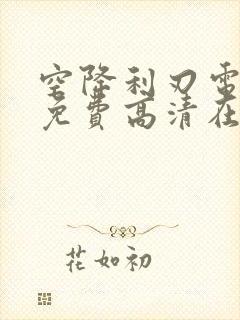 空降利刃电
免费高清在
花如初